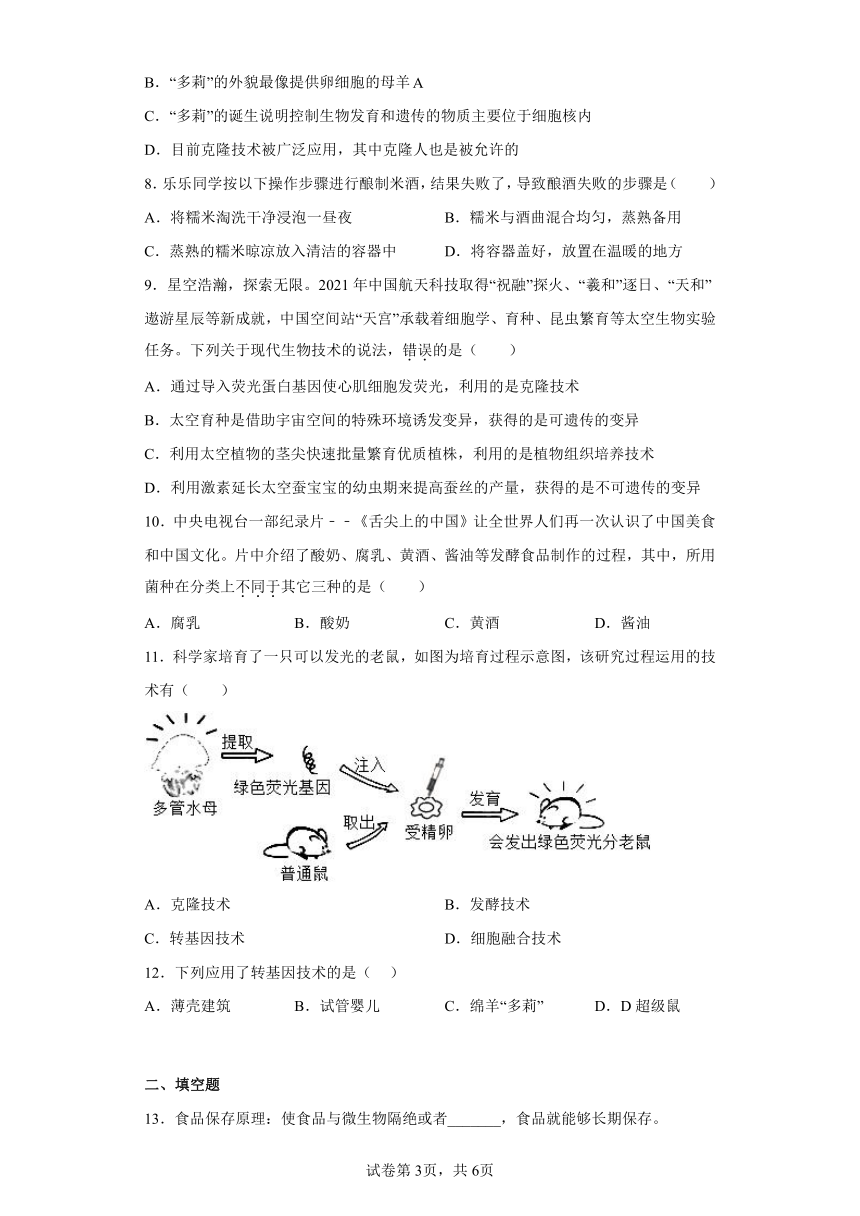 B．“多莉”的外貌最像提供卵细胞的母羊A
C．“多莉”的诞生说明控制生物发育和遗传的物质主要位于细胞核内
D．目前克隆技术被广泛应用，其中克隆人也是被允许的
8．乐乐同学按以下操作步骤进行酿制米酒，结果失败了，导致酿酒失败的步骤是（　　）
A．将糯米淘洗干净浸泡一昼夜　　B．糯米与酒曲混合均匀，蒸熟备用
C．蒸熟的糯米晾凉放入清洁的容器中　　D．将容器盖好，放置在温暖的地方
9．星空浩瀚，探索无限。2021年中国航天科技取得“祝融”探火、“羲和”逐日、“天和”
遨游星辰等新成就，中国空间站“天宫”承载着细胞学、育种、昆虫繁育等太空生物实验
任务。下列关于现代生物技术的说法，错误的是（　　）
A．通过导入荧光蛋白基因使心肌细胞发荧光，利用的是克隆技术
B．太空育种是借助宇宙空间的特殊环境诱发变异，获得的是可遗传的变异
C．利用太空植物的茎尖快速批量繁育优质植株，利用的是植物组织培养技术
D．利用激素延长太空蚕宝宝的幼虫期来提高蚕丝的产量，获得的是不可遗传的变异
10．中央电视台一部纪录片﹣﹣《舌尖上的中国》让全世界人们再一次认识了中国美食
和中国文化。片中介绍了酸奶、腐乳、黄酒、酱油等发酵食品制作的过程，其中，所用
菌种在分类上不同于其它三种的是（　　）
A．腐乳　　B．酸奶　　C．黄酒　　D．酱油
11．科学家培育了一只可以发光的老鼠，如图为培育过程示意图，该研究过程运用的技
术有（　　）
提取
注入
绿色荧光基因
多管水母
发育
取出
受精卵
会发出绿色荧光分老鼠
普通鼠
A．克隆技术　　B．发酵技术
C．转基因技术　　D．细胞融合技术
12．下列应用了转基因技术的是（　）
A．薄壳建筑　　B．试管婴儿　　C．绵羊“多莉”　　D．D超级鼠
二、填空题
13．食品保存原理：使食品与微生物隔绝或者_______，食品就能够长期保存。
试卷第3页，共6页